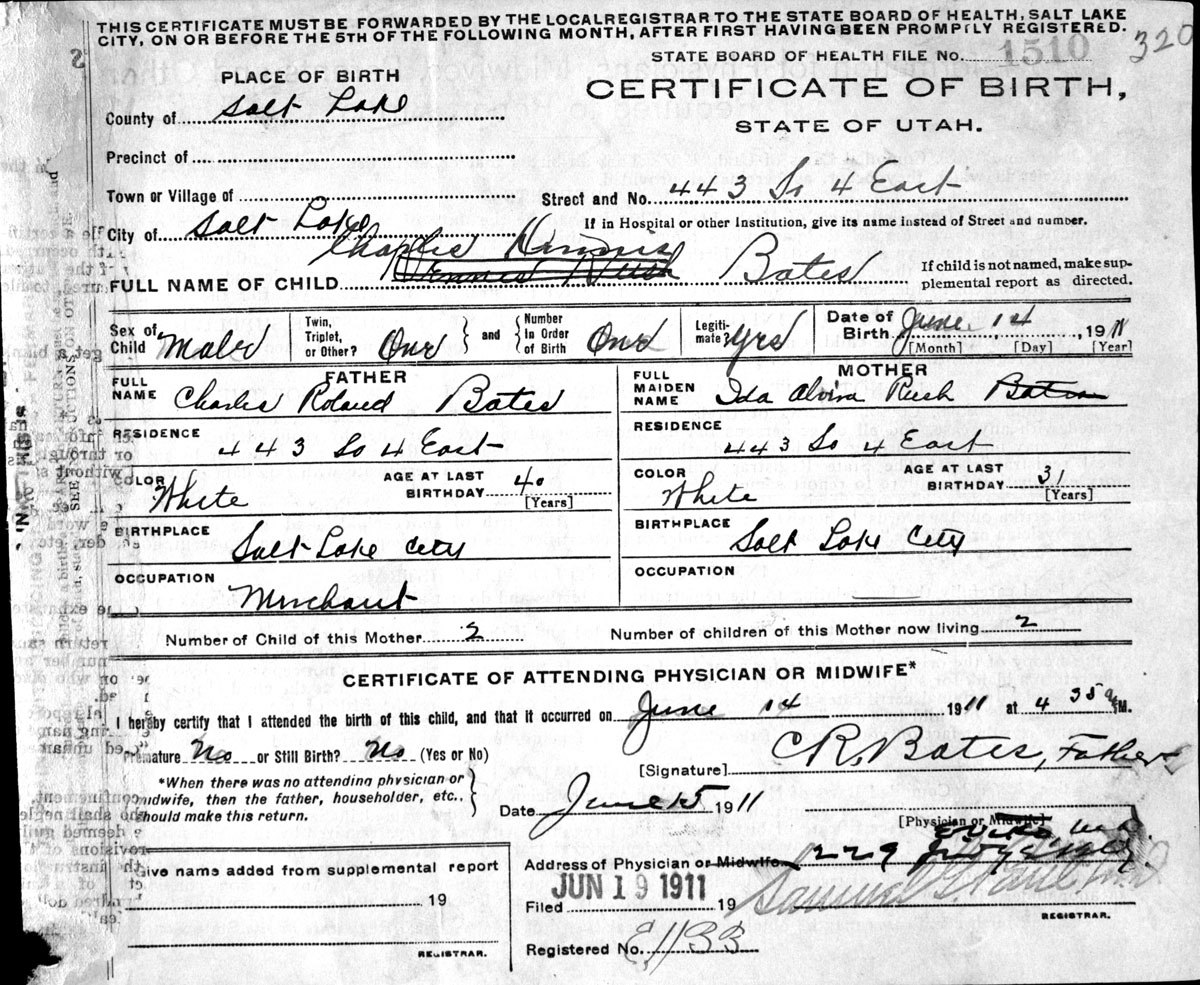 THIS CERTIFICATE MUST BE FORWARDED BY THE LOCAL REGISTRAR TO THE STATE BOARD OF HEALTH, SALT LAKE
CITY, ON OR BEFORE THE 5TH OF THE FOLLOWING MONTH, AFTER FIRST HAVING BEEN PROMPTLY REGISTERED.
320
STATE BOARD OF HEALTH FILE No. 1510
PLACE OF BIRTH
CERTIFICATE OF BIRTH,
County of Salt Lake
STATE OF UTAH.
Precinct of
Town or Village of
Street and No. 443 So 4 East
City of Salt Lake
If in Hospital or other Institution, give its name instead of Street and number.
FULL NAME OF CHILD Charles Dennis Bates
If child is not named, make sup-
plemental report as directed.
Sex of Child Male
Twin, Triplet, or Other? One
and
Number in Order of Birth One
Legiti-mate? Yes
Date of Birth June 14, 1911
[Month] [Day] [Year]
FATHER
FULL NAME Charles Roland Bates
RESIDENCE 443 So 4 East
COLOR White
AGE AT LAST BIRTHDAY 40 [Years]
BIRTHPLACE Salt Lake City
OCCUPATION Merchant
MOTHER
FULL MAIDEN NAME Ida Alvira Rush
RESIDENCE 443 So 4 East
COLOR White
AGE AT LAST BIRTHDAY 31 [Years]
BIRTHPLACE Salt Lake City
OCCUPATION
Number of Child of this Mother 2 Number of children of this Mother now living 2
CERTIFICATE OF ATTENDING PHYSICIAN OR MIDWIFE*
I hereby certify that I attended the birth of this child, and that it occurred on June 14 1911 at 4 35 a M.
Premature No or Still Birth? No (Yes or No)
[Signature] C R. Bates, Father
*When there was no attending physician or
midwife, then the father, householder, etc.,
should make this return.
Date June 15 1911
[Physician or Midwife]
Address of Physician or Midwife 229
Give name added from supplemental report
19
REGISTRAR.
Filed JUN 19 1911 19
REGISTRAR.
Registered No. 1133